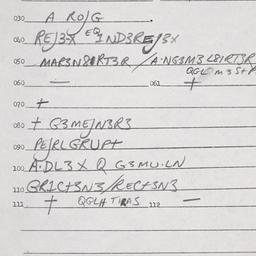 030 A ROJG
040 REJ3X EQ IND3REJ3X
050 MAR3N8IRT3R / A·NG3M3L8IRT3R
QGL M3S+P
060 — 061 +
070 +
080 + G3MEJN3R3
090 PEJRLGRUP+
100 A·DL3X Q G3MU·LN
110 QRIC+3N3/REC+3N3
111 + QGLHTIRAS 112 —